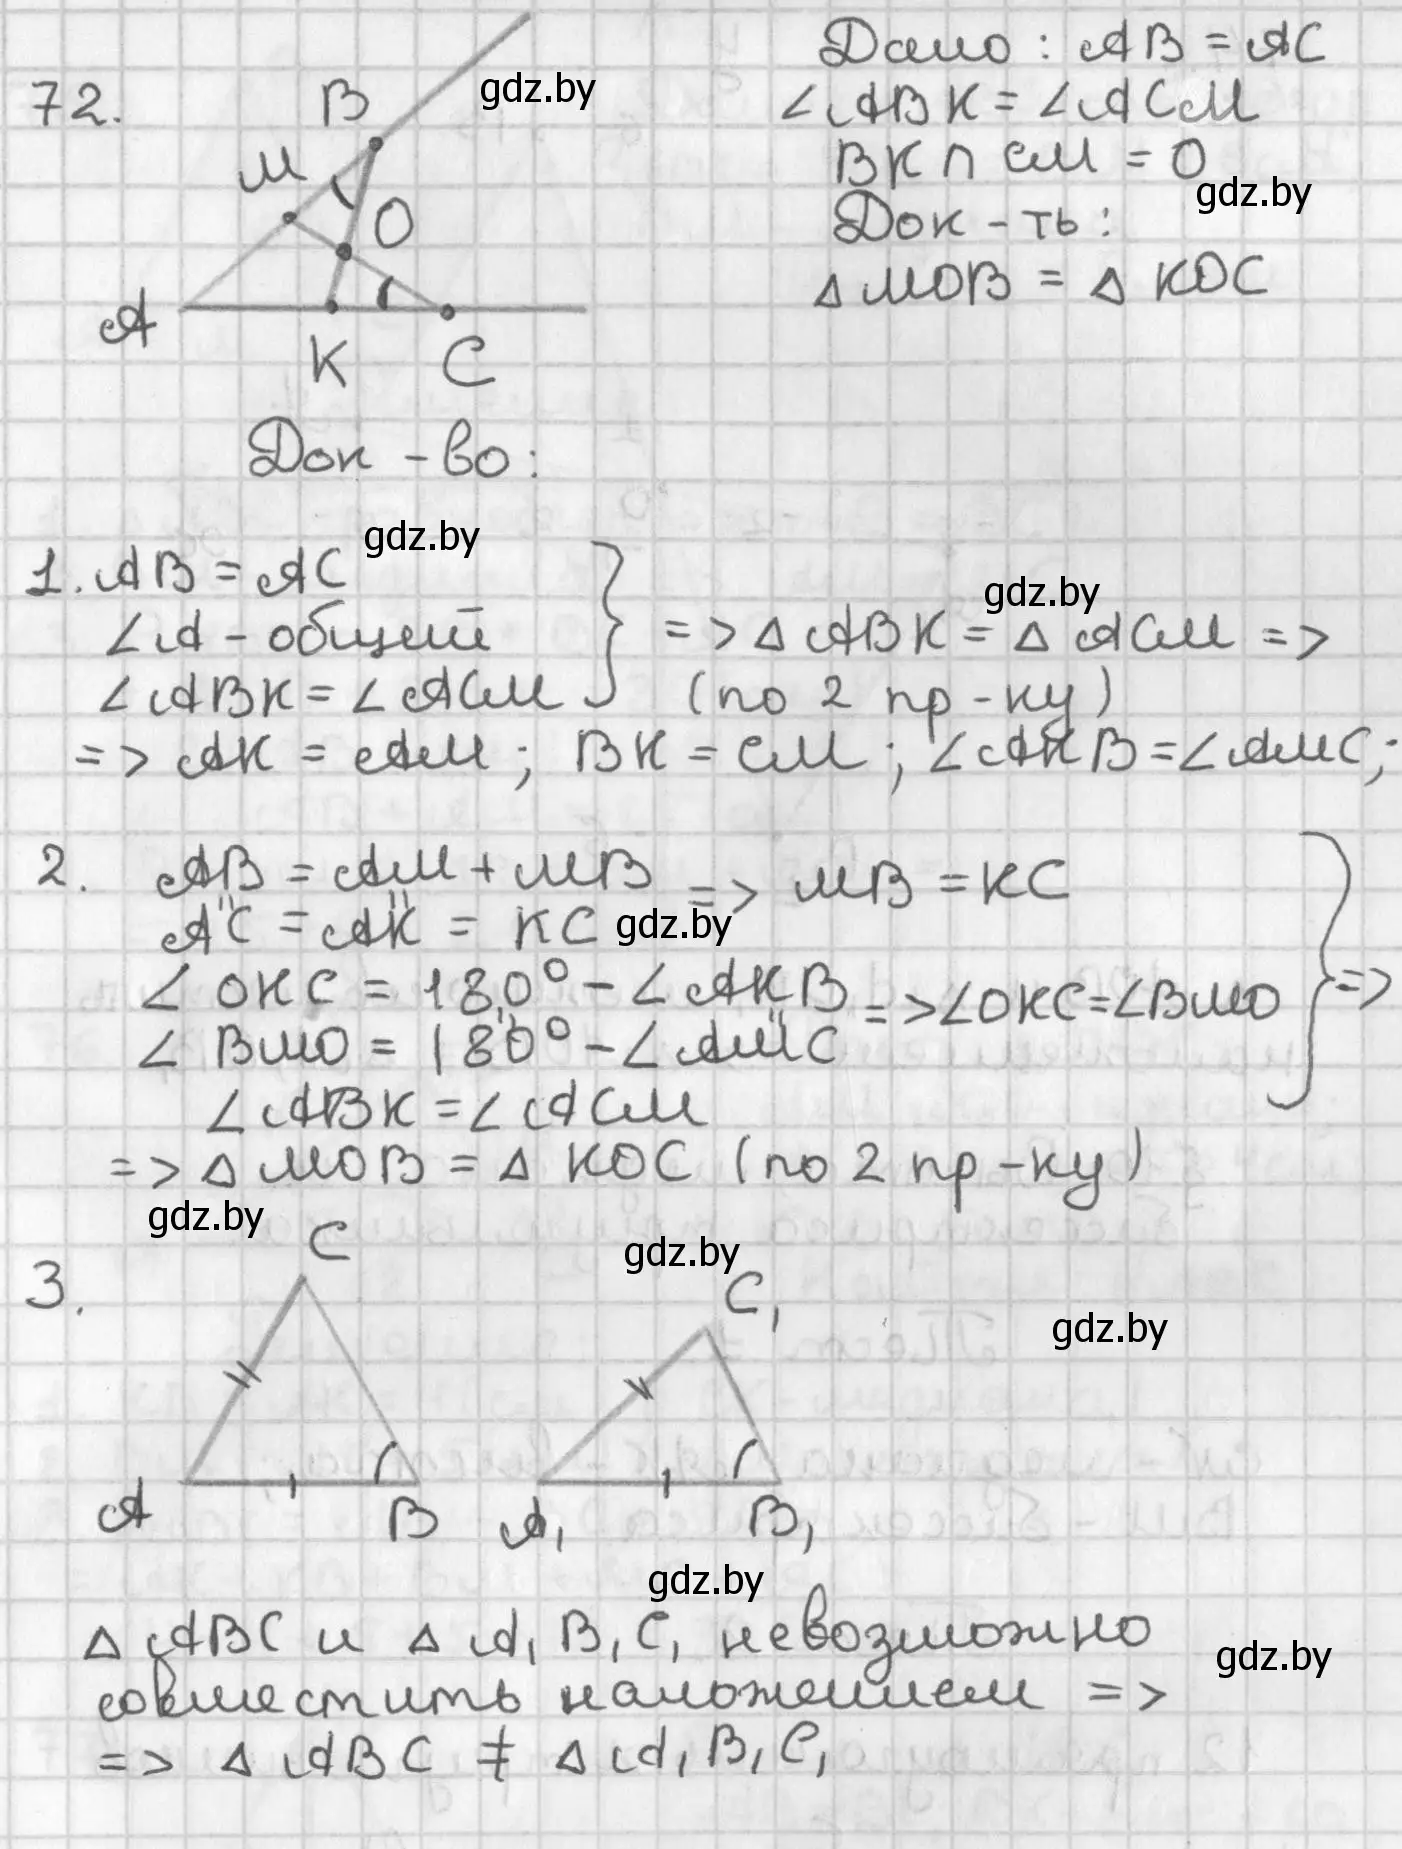 72.
B
M
O
A
K
C
gdz.by
Дано: AB = AC
∠ABK = ∠ACM
BK ∩ CM = O
gdz.by
Док-ть:
△ MOB = △ KOC
Док-во:
gdz.by
1. AB = AC
∠A - общий
∠ABK = ∠ACM
gdz.by
=> △ ABK = △ ACM =>
(по 2 пр-ку)
=> AK = AM; BK = CM; ∠AKB = ∠AMC;
2. AB = AM + MB
AC = AK = KC
=> MB = KC
gdz.by
∠ OKC = 180° - ∠AKB
∠ BMO = 180° - ∠AMC
=> ∠OKC = ∠BMO
=>
∠ABK = ∠ACM
=> △ MOB = △ KOC (по 2 пр-ку)
gdz.by
gdz.by
3.
C
A
B
C₁
A₁
B₁
gdz.by
gdz.by
△ ABC и △ A₁B₁C₁ невозможно
gdz.by
совместить наложением =>
=> △ ABC ≠ △ A₁B₁C₁